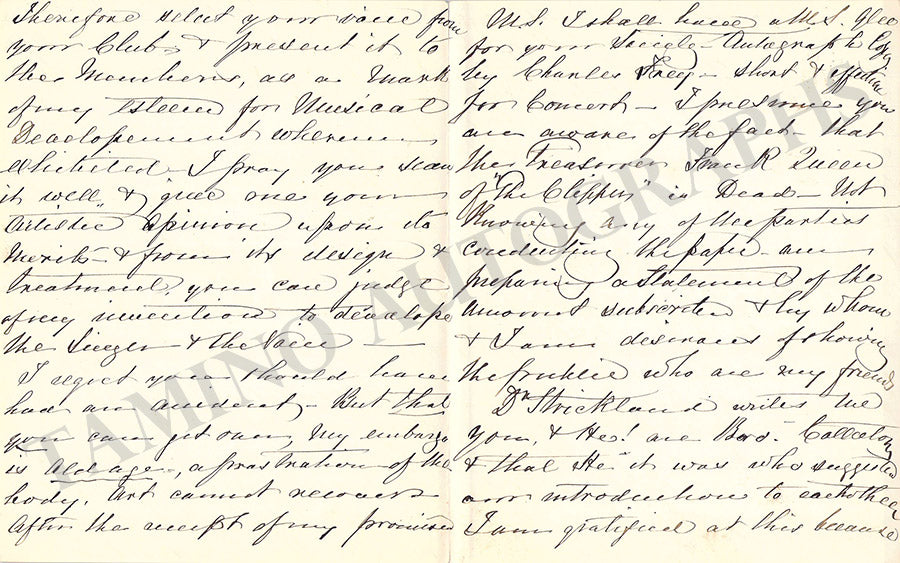 Therefore select your voice from
your Club & present it to
the Members, as a Mark
of my Esteem for Musical
Developement wherein
exhibited. I pray you scan
it well, & give me your
Artistic Opinion upon its
Merit - & from its design &
treatment, you can judge
of my invention to develope
the Singer & the Voice
I regret you should have
had an accident, - But that
you can get over, my embargo
is Old age, a prostration of the
body, Art cannot recover
After the receipt of my promised
M.S. I shall have a M.S. Glee
for your Circle - Autograph Copy
by Charles - short & effective
for Concert - I presume you
are aware of the fact - that
the Treasurer Frank Queen
of "The Clipper" is Dead - Not
Knowing any of the parties
conducting the paper am
preparing a Statement of the
Amount subscribed & by whom
& I am desirous of showing
the public who are my friends
Dr Strickland writes me
you, & He! are Bro.
& that He it was who suggested
our introduction to each other
I am gratified at this because
TAMINO AUTOGRAPHS